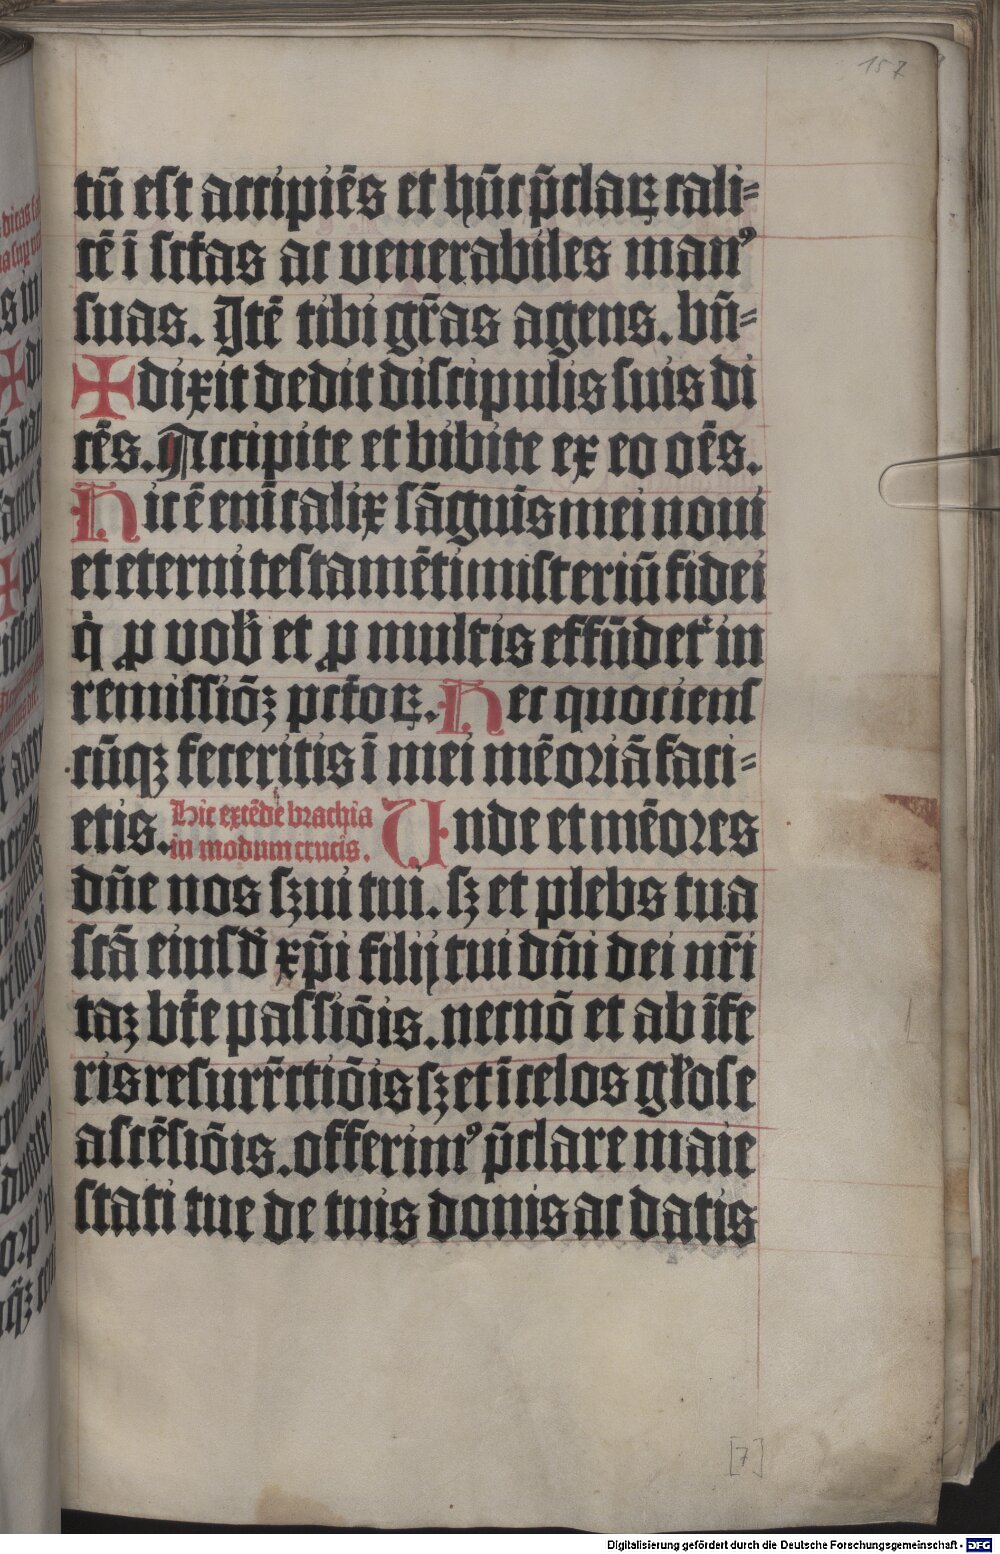 157
tū est accipiēs et hūc p̄claꝝ cali⸗
cē ī sc̄tas ac venerabiles manꝰ
suas. Itē tibi gr̄as agens. bn̄⸗
✠ dixit dedit discipulis suis di
cēs. Accipite et bibite ex eo oēs.
Hic ē enī calix sāguīs mei noui
et eterni testamēti misteriū fidei
q̇ ꝓ vob̄ et ꝓ multis effūdet᷑ in
remissiōꝫ pctōꝝ. Hec quociens
cūqꝫ feceritis ī mei mēoriā faci⸗
etis. Hic extēde brachia
in modum crucis. Unde et mēores
dn̄e nos sꝫui tui. sꝫ et plebs tua
sc̄tā eiusd̄ xp̄i filij tui dn̄i dei nr̄i
taꝫ bt̄e passiōis. necnō et ab īfe
ris resurr̄ctiōis sꝫ et ī celos gl̄ose
ascēsiōis. offerimꝰ p̄clare maie
stati tue de tuis donis ac datis
[7]
Digitalisierung gefördert durch die Deutsche Forschungsgemeinschaft - DFG